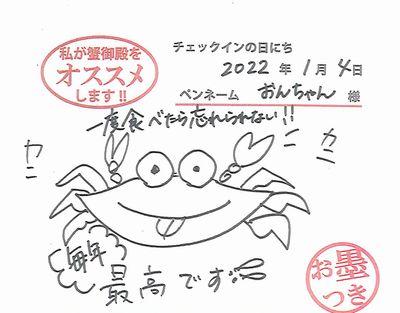 私が蟹御殿を
オススメ
します!!
チェックインの日にち
2022 年 1 月 4 日
ペンネーム おんちゃん 様
一度食べたら忘れられない!!
カニ
カニ
毎年
最高です
お墨
つき